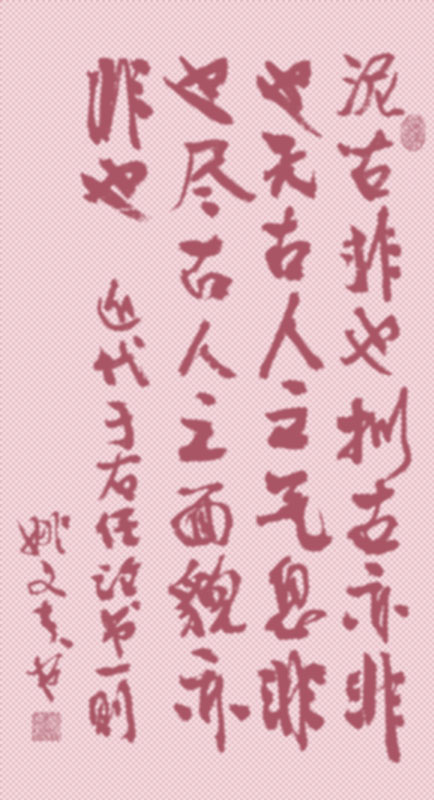 泥古非也拟古亦非
也无古人之气息非
也尽古人之面貌亦
非也 近代于右任论书一则
姚文书